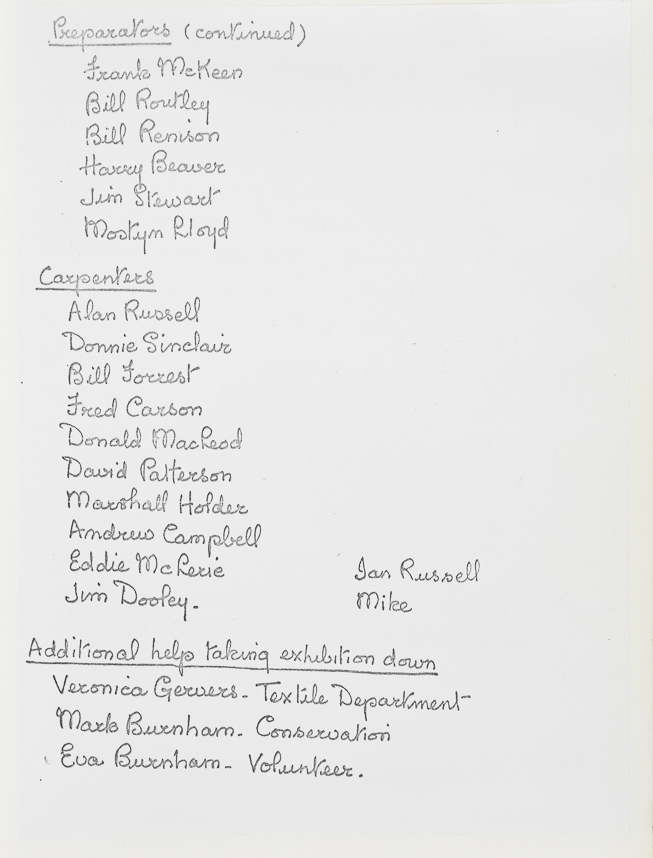 Preparators (continued)
Frank McKeen
Bill Routley
Bill Renison
Harry Beaver
Jim Stewart
Mostyn Lloyd
Carpenters
Alan Russell
Donnie Sinclair
Bill Forrest
Fred Carson
Donald MacLeod
David Patterson
Marshall Holder
Andrew Campbell
Eddie McLerie
Jim Dooley.
Ian Russell
Mike
Additional help taking exhibition down
Veronica Gervers - Textile Department
Mark Burnham - Conservation
Eva Burnham - Volunteer.